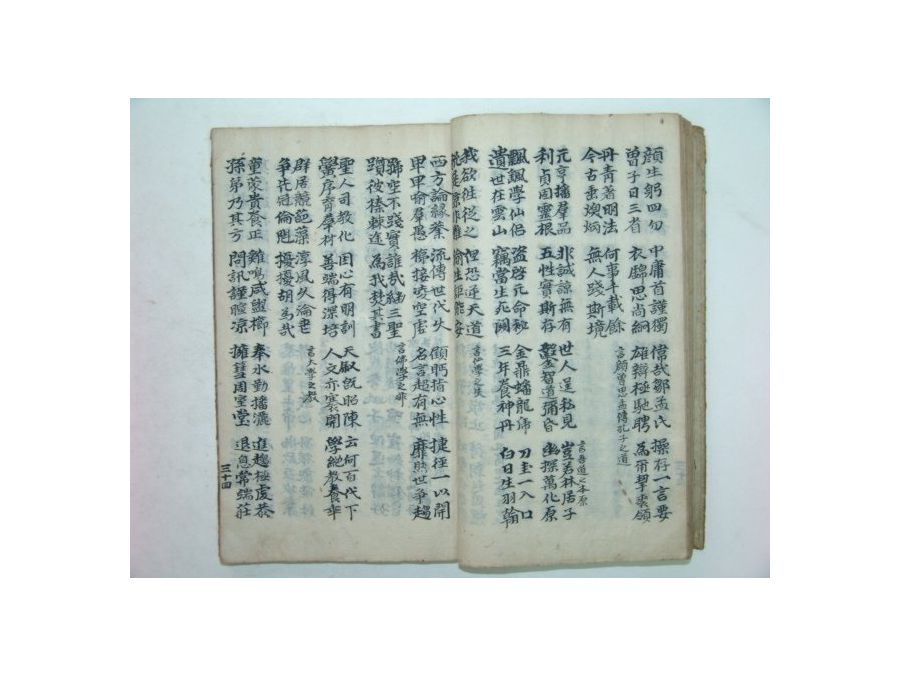 顔生躬四勿 中庸首謹獨 偉哉鄒孟氏 操存一言要
曾子日三省 衣錦思尚絅 雄辯極馳聘 為爾挈裘領
丹青著明法 何事千載餘 言顔曾思孟傳孔子之道
今古垂煥炳 無人踐斯境
言吾道之本原
元亨播羣品 非誠諒無有 世人逞私見 豈若林居子
利貞固靈根 五性實斯存 鑿智道彌昏 幽探萬化原
飄飄學仙侶 盜啓元命秘 金鼎蟠龍虎 刀圭一入口
遺世在雲山 竊當生死關 三年養神丹 白日生羽翰
我欲往從之 但恐逆天道 言仙學之失
脫屣諒非難 偷生詎能安
西方論緣業 流傳世代久 顧眄指心性 捷徑一以開
卑卑喻羣愚 梯接凌空虛 名言超有無 靡然世爭趨
號空不踐實 誰哉繼三聖 言佛學之非
躓彼榛棘途 為我焚其書
聖人司教化 因心有明訓 天叙既昭陳 云何百代下
黌序育羣材 善端得深培 人文亦褰開 學絶教養乖
群居競葩藻 淳風久淪喪 言大學之教
爭先冠倫魁 擾擾胡為哉
童蒙貴養正 雞鳴咸盥櫛 奉水勤播灑 進趨極虔恭
孫弟乃其方 問訊謹暄凉 擁篲周室堂 退息常端莊
三十四